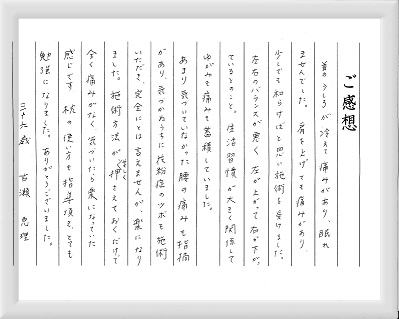 ご感想
首のうしろが冷えて痛みがあり、眠れ
ませんでした。肩を上げても痛みがあり、
少しでも和らげばと思い施術を受けました。
左右のバランスが悪く、左が上がって右が下が
っているとのこと。生活習慣が大きく関係して
ゆがみも痛みも蓄積していました。
あまり気づいていなかった腰の痛みも指摘
があり、気づかぬうちに花粉症のツボも施術
いただき、完全にとは言えませんが、楽になり
ました。施術方法が優しく押さえておくだけで、
全く痛みがなく気づいたら楽になっていた
感じです。枕の使い方も指導頂き、とても
勉強になりました。ありがとうございました。
三十六歳 古瀬 恵理